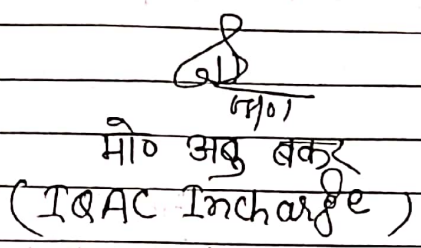 मो० अबु बकर
(IQAC Incharge)